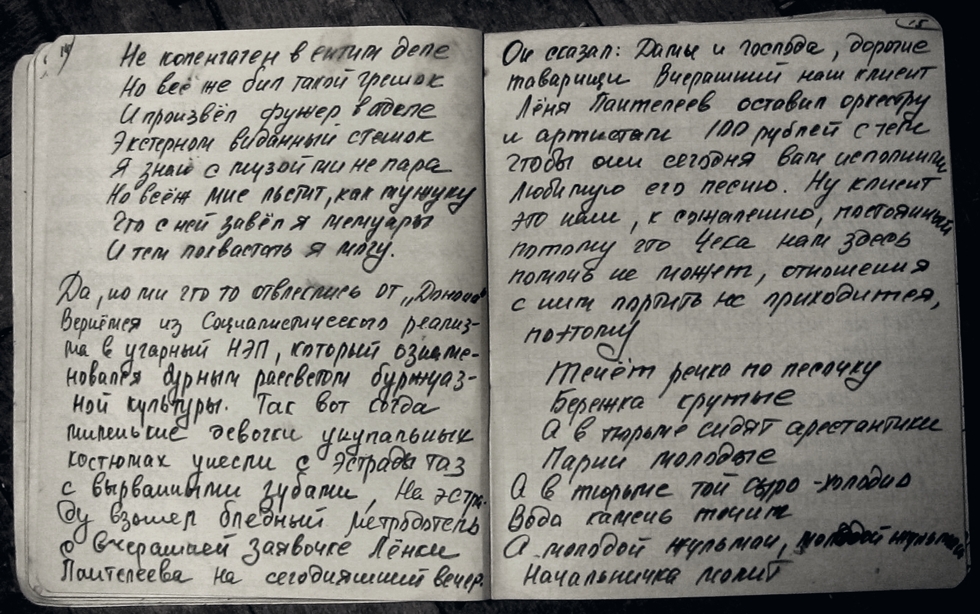 14
Не копенгаген в ентим деле
Но всё же был такой грешок
И произвёл фужер в теле
Экстерном виданный стешок
Я знаю с музой ми не пара
Но всёж мне льстит, как мужику
Что с ней завёл я мемуары
И тем похвастать я могу.
Да, но ми что то отвлеклись от „Донона"
Вернёмся из Социалистического реализ-
ма в угарный НЭП, который ознаме-
новался бурным рассветом буржуаз-
ной культуры. Так вот когда
миленькие девочки у купальных
костюмах унесли с Эстрады таз
с вырванными зубами, На эстра-
ду взошел бледный Метродотель
с вчерашней заявочке Лёньки
Пантелеева на сегодняшний вечер.
15
Он сказал: Дамы и господа, дорогие
таварищи Вчерашний наш клиент
Лёня Пантелеев оставил оркестру
и артистам 100 рублей с тем
чтобы они сегодня вам исполнили
любимую его песню. Ну клиент
это наш, к сожалению, постоянный
потому что Чека нам здесь
помочь не может, отношения
с ним портить не приходится,
поэтому
Течёт речка по песочку
Бережка крутые
А в тюрьме сидят арестантики
Парни молодые
А в тюрьме той сыро-холодно
Вода камень точит
А молодой жульман, молодой жульман
Начальничка молит